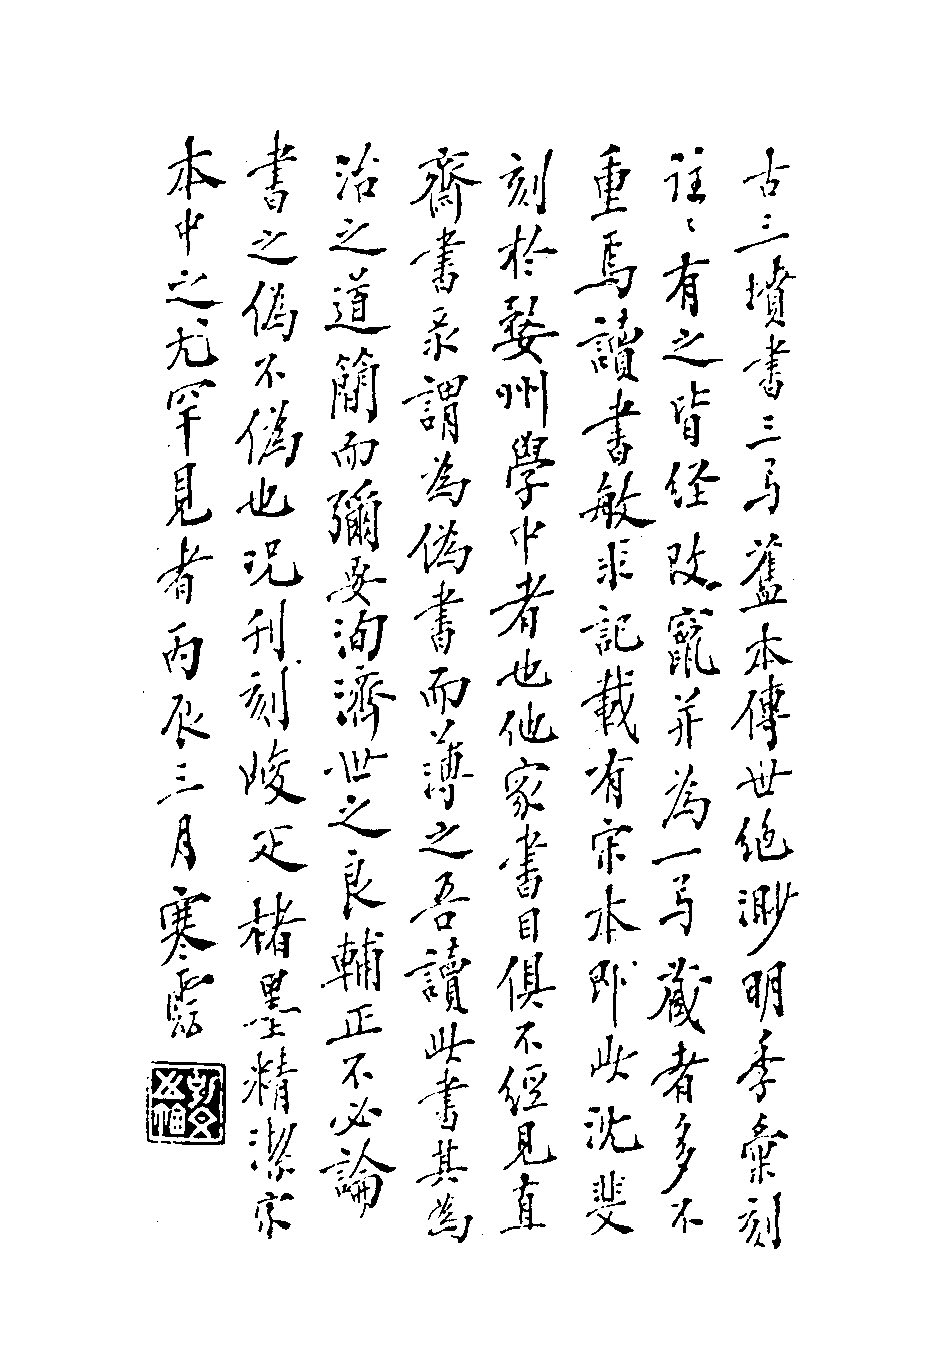 古三墳書三弓舊本傳世絕尠明季彙刻
往〻有之皆経改竄并為一弓蔵者多不
重焉讀書敏求記載有宋本即此沈斐
刻於婺州學中者也他家書目俱不經見直
齋書录謂為偽書而薄之吾讀此書其為
治之道簡而彌要洵濟世之良輔正不必論
書之偽不偽也况刊刻峻正楮墨精潔宋
本中之尤罕見者丙辰三月寒雲